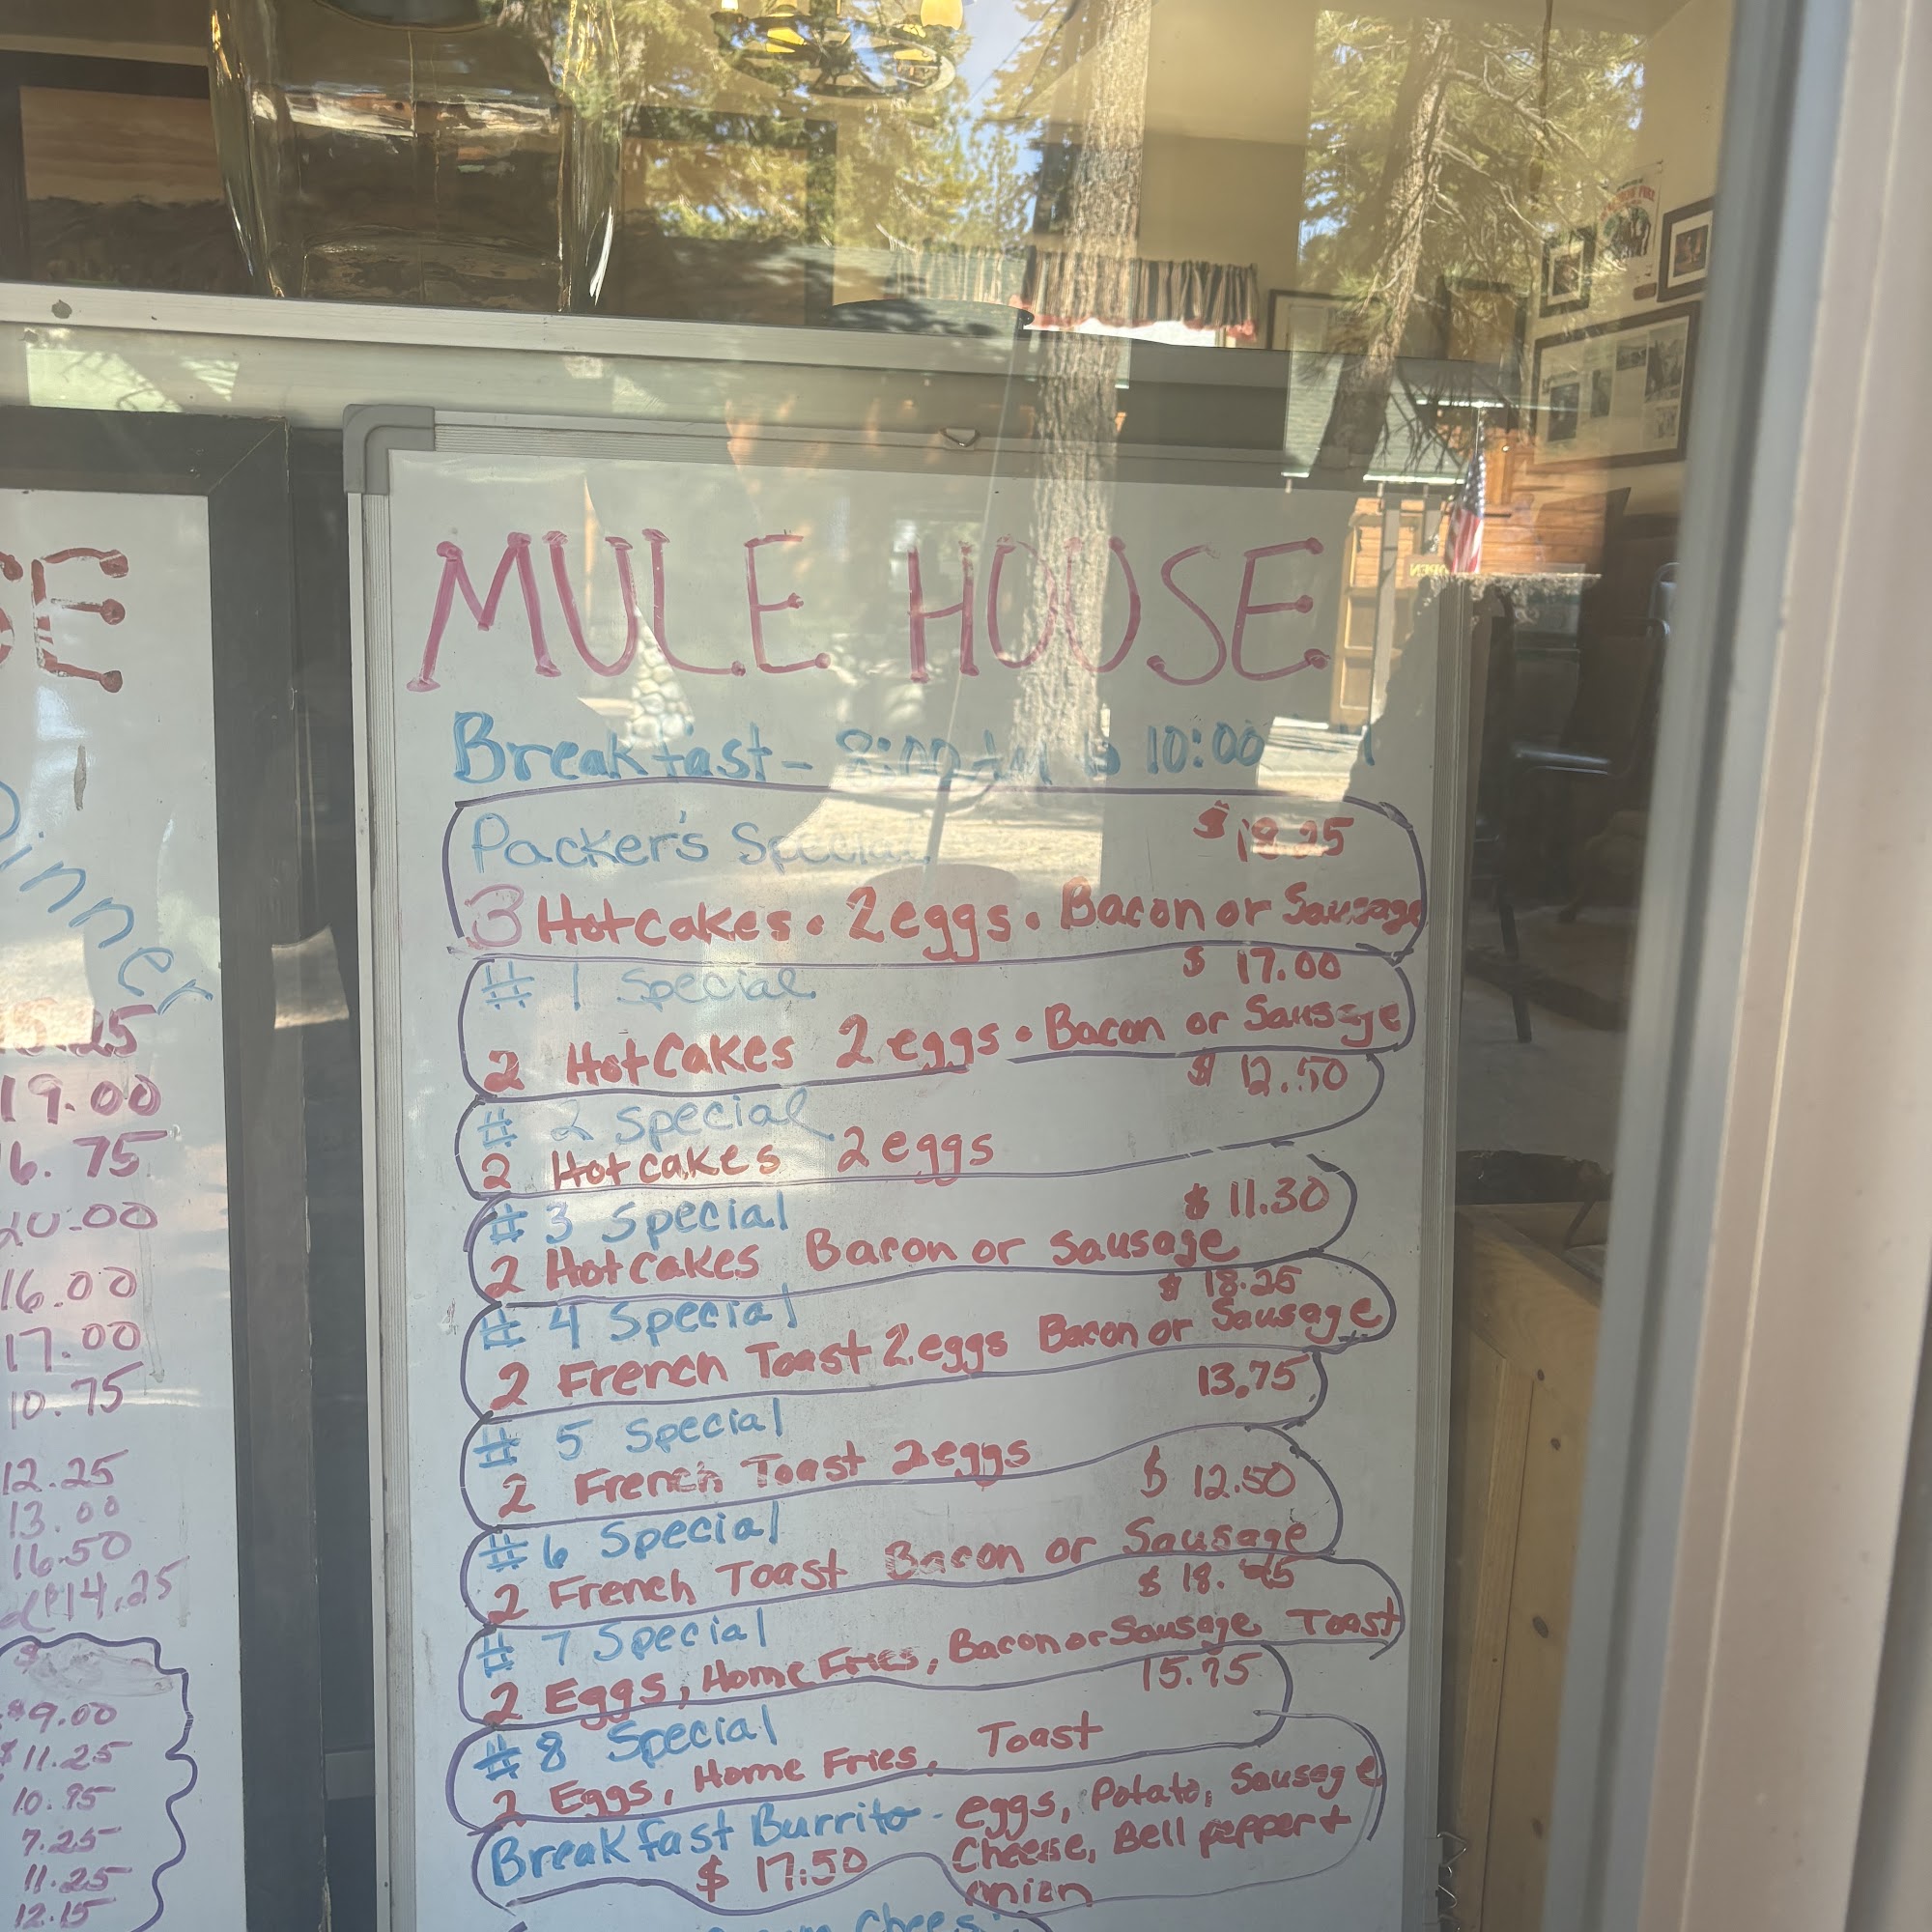 SE
Dinner
19.00
6.75
20.00
16.00
17.00
10.75
12.25
13.00
16.50
14.25
$9.00
$11.25
10.95
7.25
11.25
12.15
MULE HOUSE
Breakfast - 8:00 AM to 10:00
Packer's Special
3 Hotcakes • 2 eggs • Bacon or Sausage
# 1 Special $ 17.00
2 Hotcakes 2 eggs • Bacon or Sausage
# 2 Special $ 12.50
2 Hotcakes 2 eggs
# 3 Special $ 11.30
2 Hotcakes Bacon or Sausage
# 4 Special $ 18.25
2 French Toast 2 eggs Bacon or Sausage
# 5 Special 13.75
2 French Toast 2 eggs
# 6 Special $ 12.50
2 French Toast Bacon or Sausage
# 7 Special
2 Eggs, Home Fries, Bacon or Sausage Toast
# 8 Special
2 Eggs, Home Fries, Toast
Breakfast Burrito - eggs, Potato, Sausage
$ 17.50 Cheese, Bell pepper +
onion
OPEN